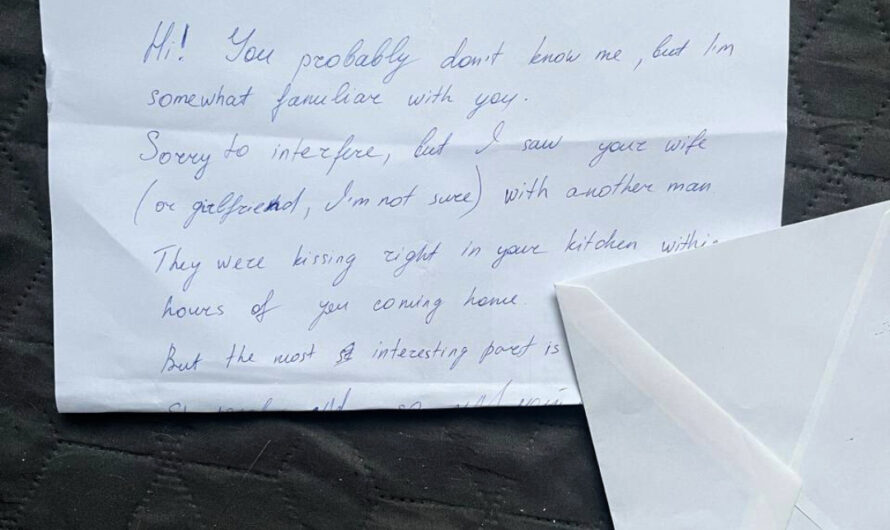 Hi! You probably don't know me, but I'm
somewhat familiar with you.
Sorry to interfere, but I saw your wife
(or girlfriend, I'm not sure) with another man
They were kissing right in your kitchen
hours of you coming home.
But the most interesting part is